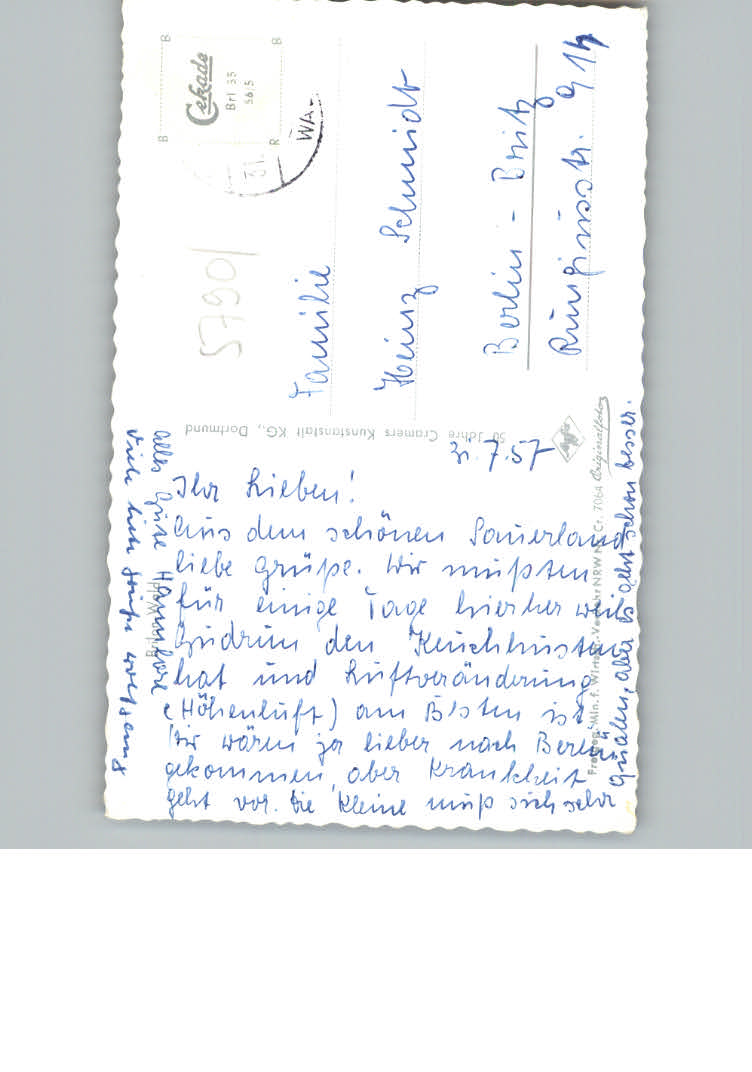 31.7.57
Ihr Lieben!
Aus dem schönen Sauerland
liebe Grüße. Wir mußten
für einige Tage hierher weil
Gudrun den Keuchhusten
hat und Luftveränderung
(Höhenluft) am Besten ist.
Wir wären ja lieber nach Berlin
gekommen, aber Krankheit
geht vor. Die Kleine muß sich sehr
quälen, aber es geht schon besser.
Alles Gute Hannelore
Viele liebe Grüße Wolfgang
Familie
Heinz Schmidt
Berlin - Britz
Rungiusstr.
Cekade
Brl 55
56/5
B B
B R
WA
31.
5790/
50 Jahre Cramers Kunstanstalt KG., Dortmund
Agfa
Originalfoto
Freigeg. Min. f. Wirtsch. Verkehr NRW Nr. Cr. 7064